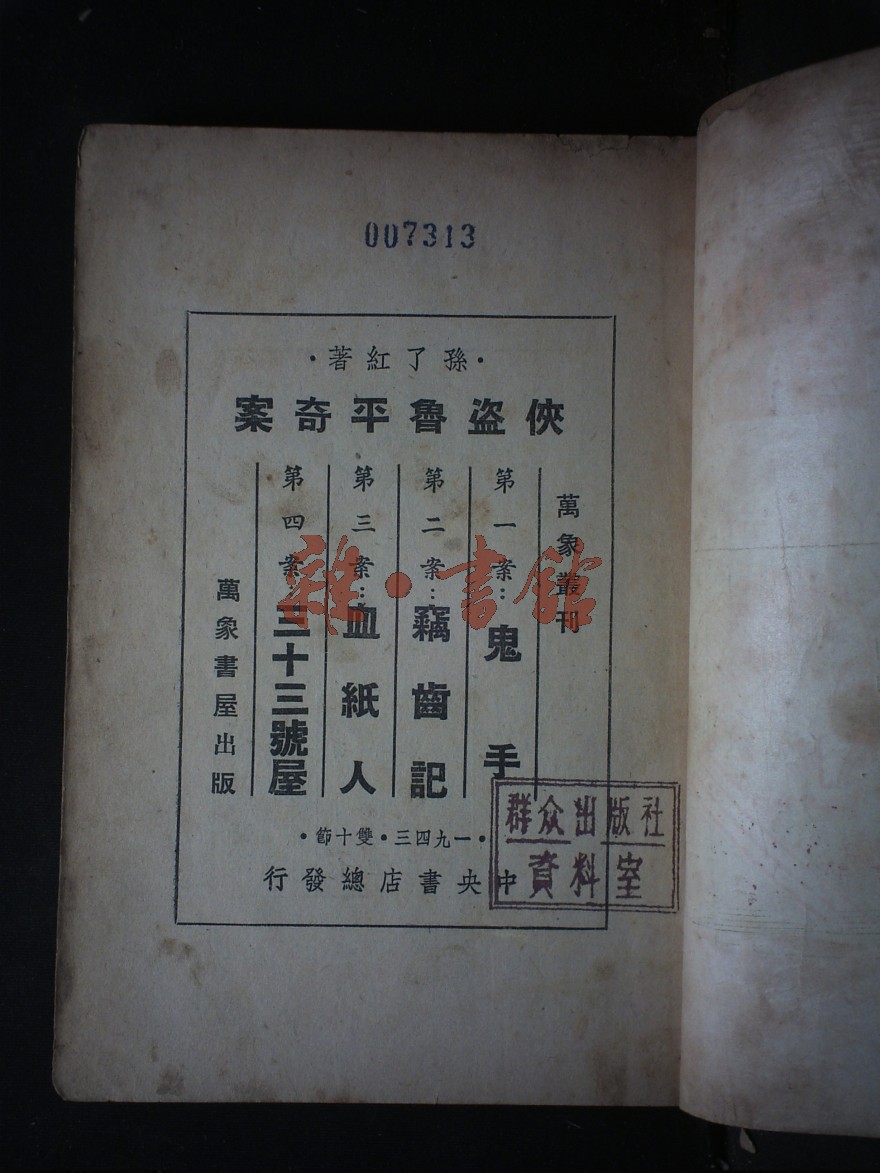 007313
·孫了紅著·
俠盜魯平奇案
萬象叢刊
第一案：鬼手
第二案：竊齒記
第三案：血紙人
第四案：三十三號屋
萬象書屋出版
·一九四三·雙十節·
中央書店總發行
群众出版社
資料室
雜·書館